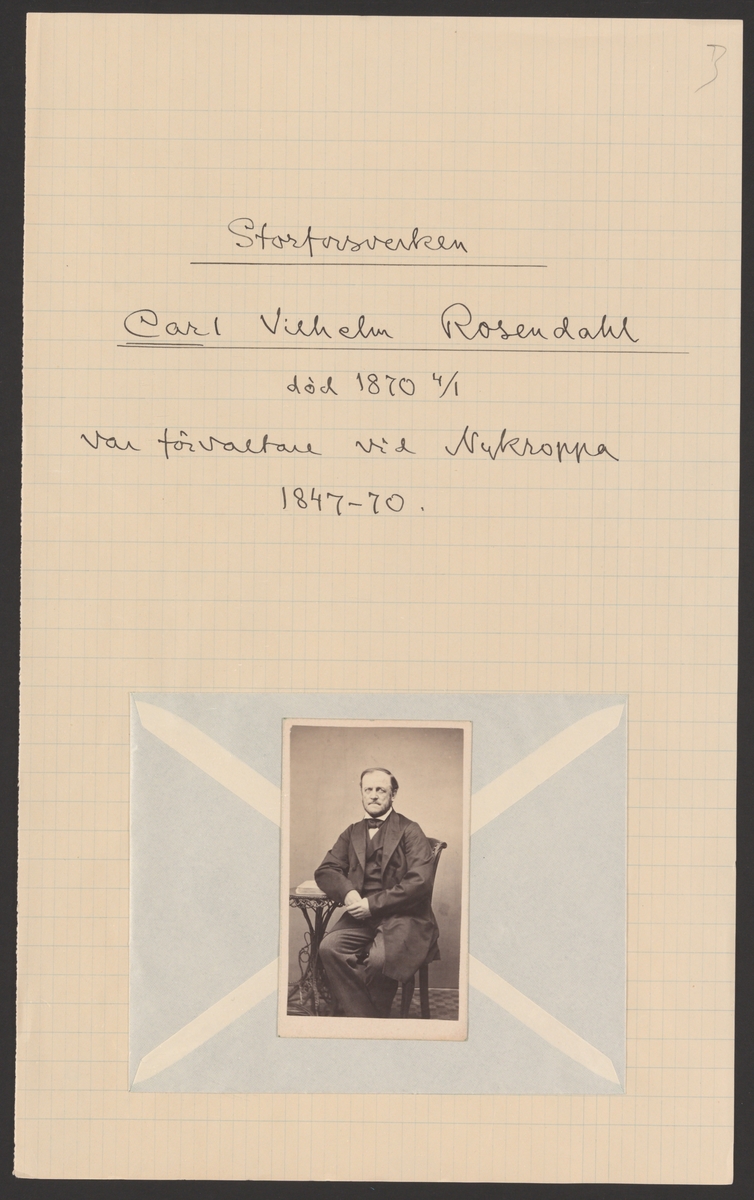 B
Storforsverken
Carl Vilhelm Rosendahl
död 1870 4/1
var förvaltare vid Nykroppa
1847-70.